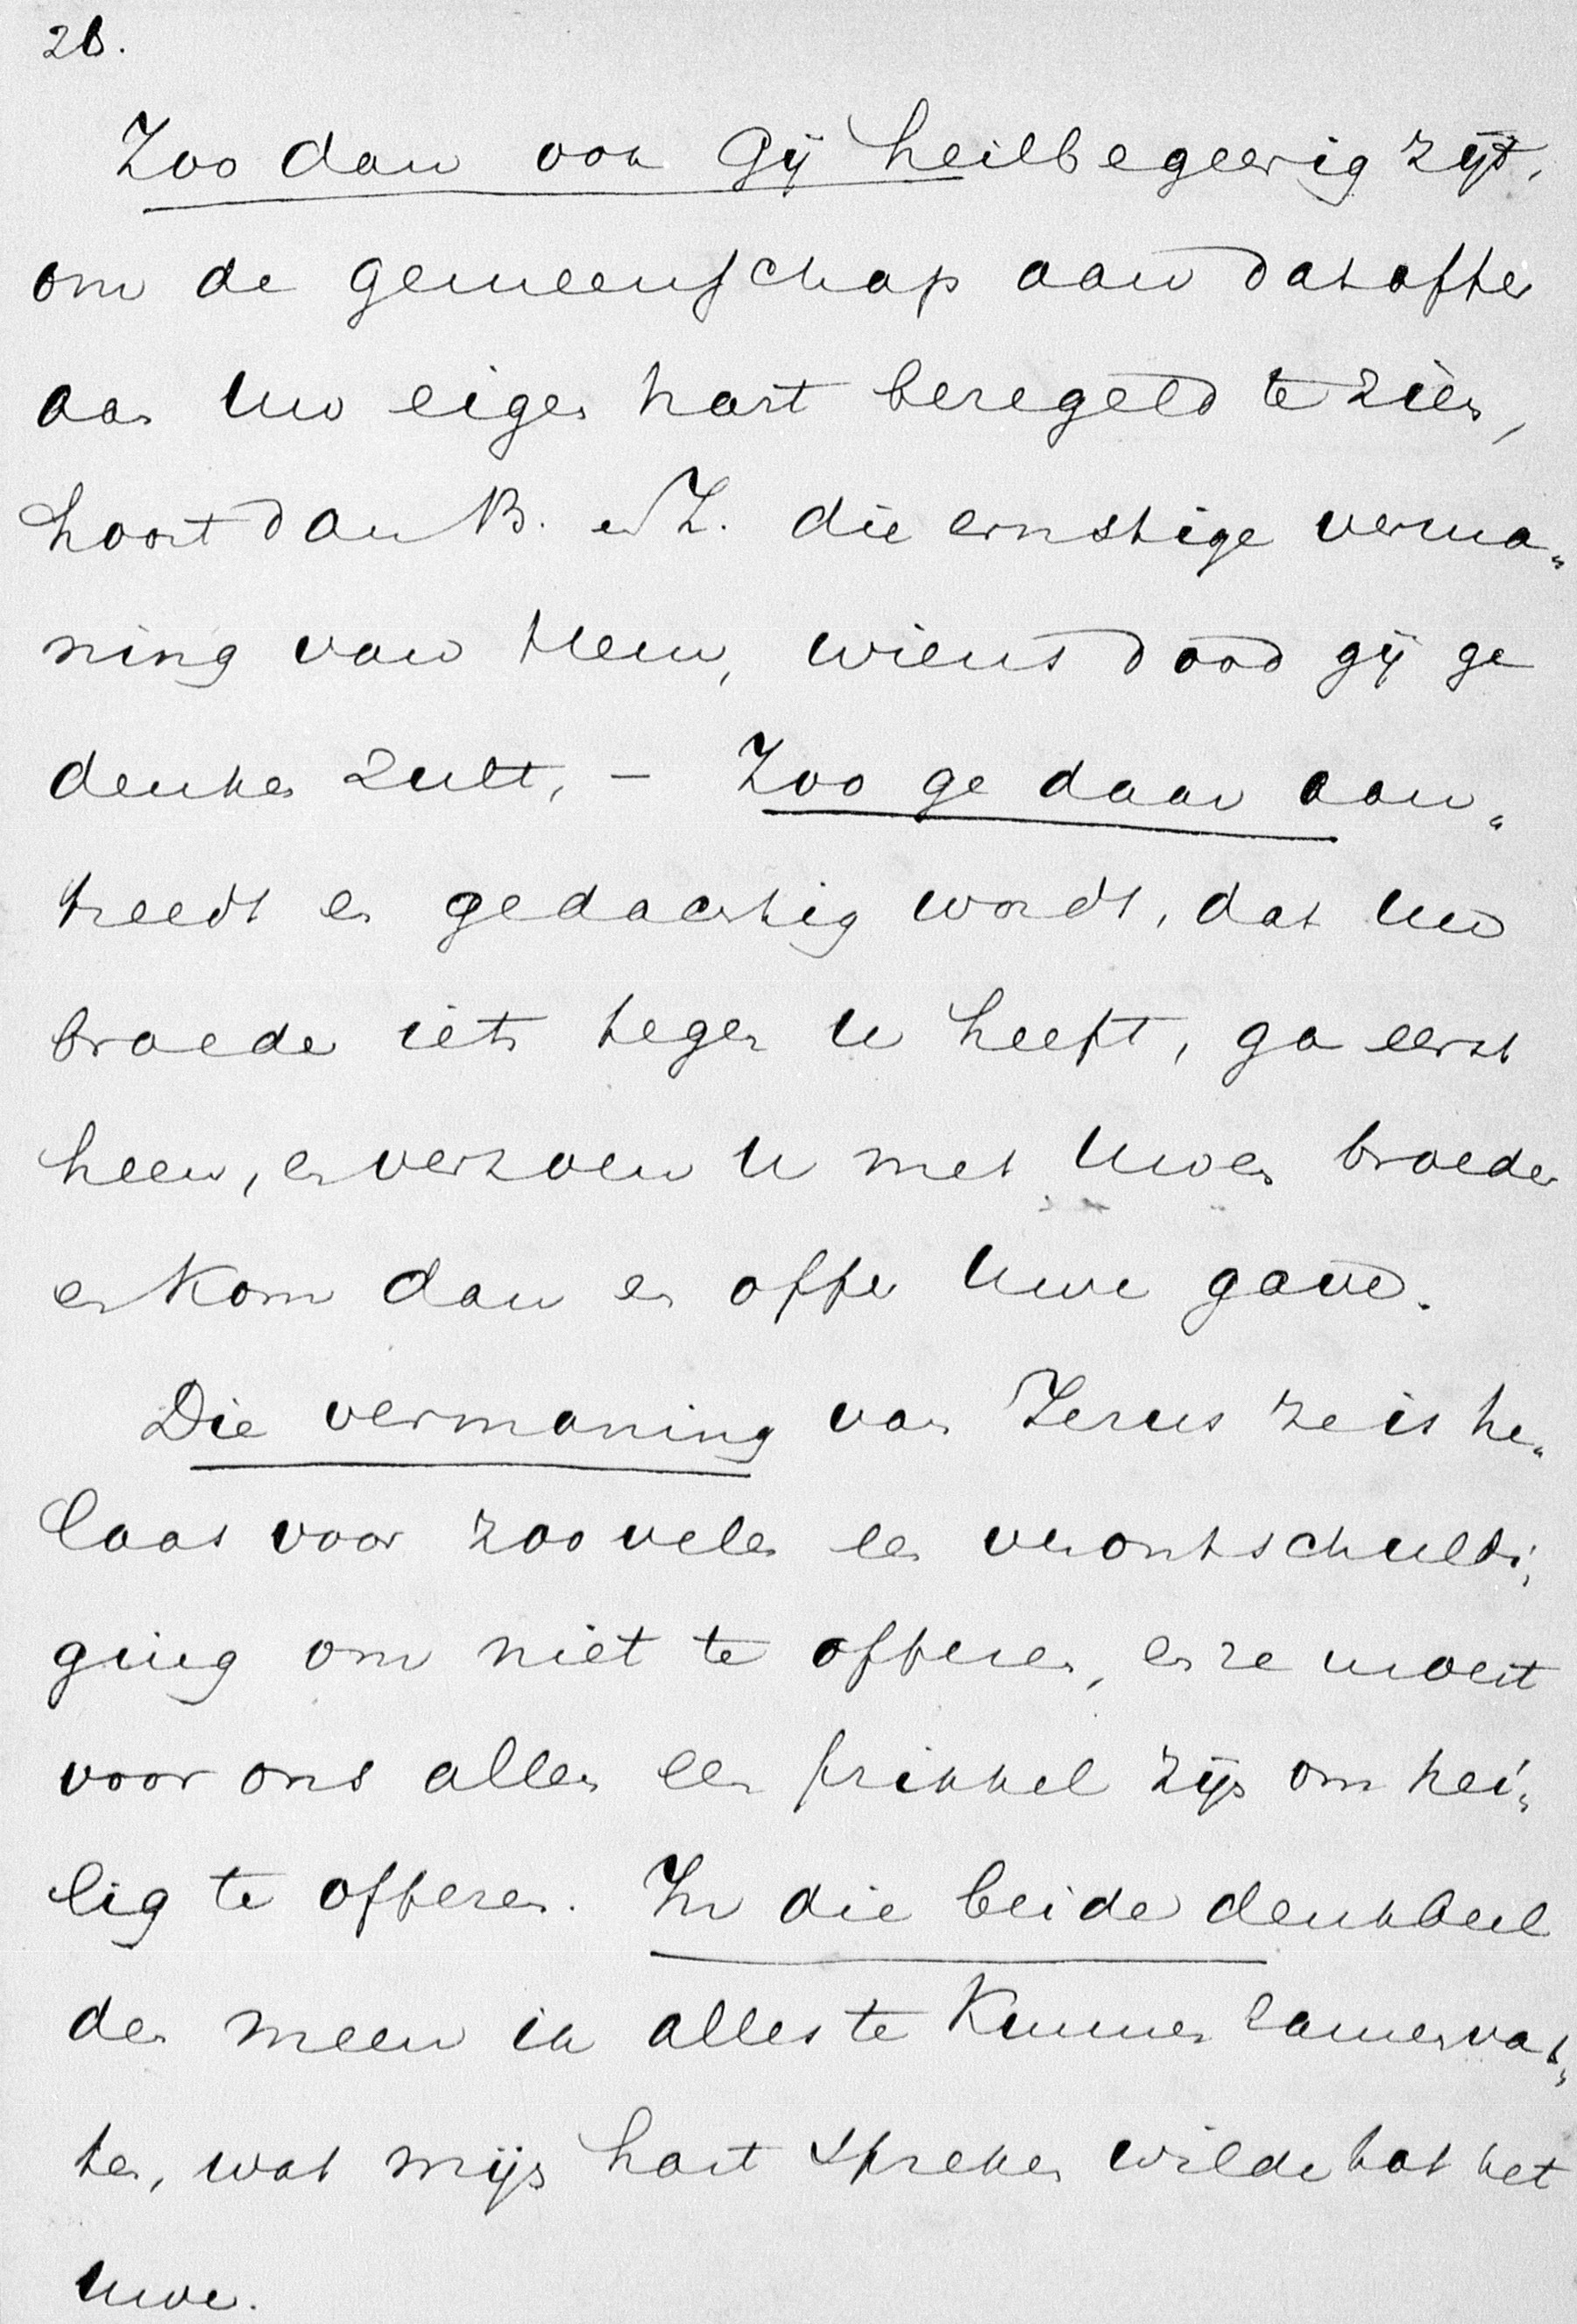 28.
Zoo dan ook Gij heilbegeerig zijt,
om de gemeenschap aan dat offer
aan Uw eigen hart bezegeld te zien,
hoort dan B. en Z. die ernstige verma„
ning van Hem, wiens dood gij ge
denken zult, – Zoo ge daar aan„
treedt en gedachtig wordt, dat Uw
broeder iets tegen U heeft, ga eerst
heen, en verzoen U met Uwen broeder
en kom dan en offer Uwe gave.
Die vermaning van Jezus ze is he„
laas voor zoovelen een verontschuldi„
ging om niet te offeren, en ze moest
voor ons allen een prikkel zijn om hei„
lig te offeren. In die beide denkbeel
den meen ik alles te kunnen zamenvat„
ten, wat mijn hart spreken wilde tot het
Uwe.